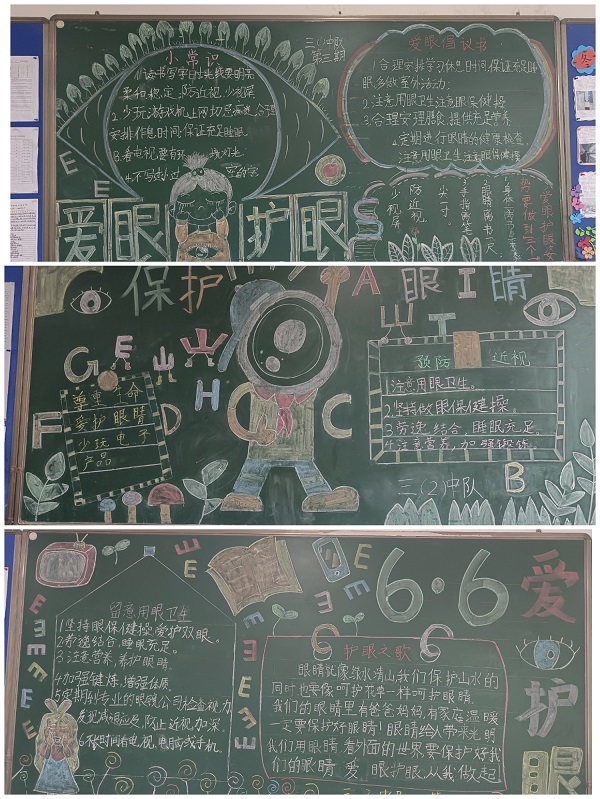 小常识
三(1)中队
第三期
柔和稳定,防近视,少视屏
2.少玩游戏机上网切忌疲惫,合理
安排作息时间,保证充足睡眠。
3.看电视要有
4.不写
爱眼护眼
爱眼倡议书
1.合理安排学习休息时间,保证充足睡
眠,多做室外活动;
2.注意用眼卫生,注意眼保健操
3.合理安理膳食,提供充足营养
定期进行眼睛的健康检查,
注意用眼卫生,注意眼保健操
少视屏
防近视
尖一寸
手指离笔
眼睛离书一尺
E
E
保护眼睛
A
I
G
E
山
F
D
H
C
C
B
尊重生命
爱护眼睛
少玩电子
产品
预防 近视
1.注意用眼卫生。
2.坚持做眼保健操。
3.劳逸结合,睡眠充足。
4.注意营养,加强锻炼。
三(2)中队
6·6
爱
护
眼
留意用眼卫生
1.坚持眼保健操,爱护双眼。
2.劳逸结合,睡眠充足。
3.注意营养,养护眼睛。
4.加强键炼,增强体质。
5.定期到专业的眼镜公司检查视力,
发现减相应反,防止近视加深。
6.不长时间看电视、电脑或手机。
护眼之歌
眼睛就像绿水清山,我们保护山水的
同时也要像呵护花草一样呵护眼睛.
我们的眼睛里有爸爸妈妈,有家庭温暖
一定要保护好眼睛!眼睛给人带来光明,
我们用眼睛看外面的世界,要保护好我
们的眼睛 爱眼护眼,从我做起